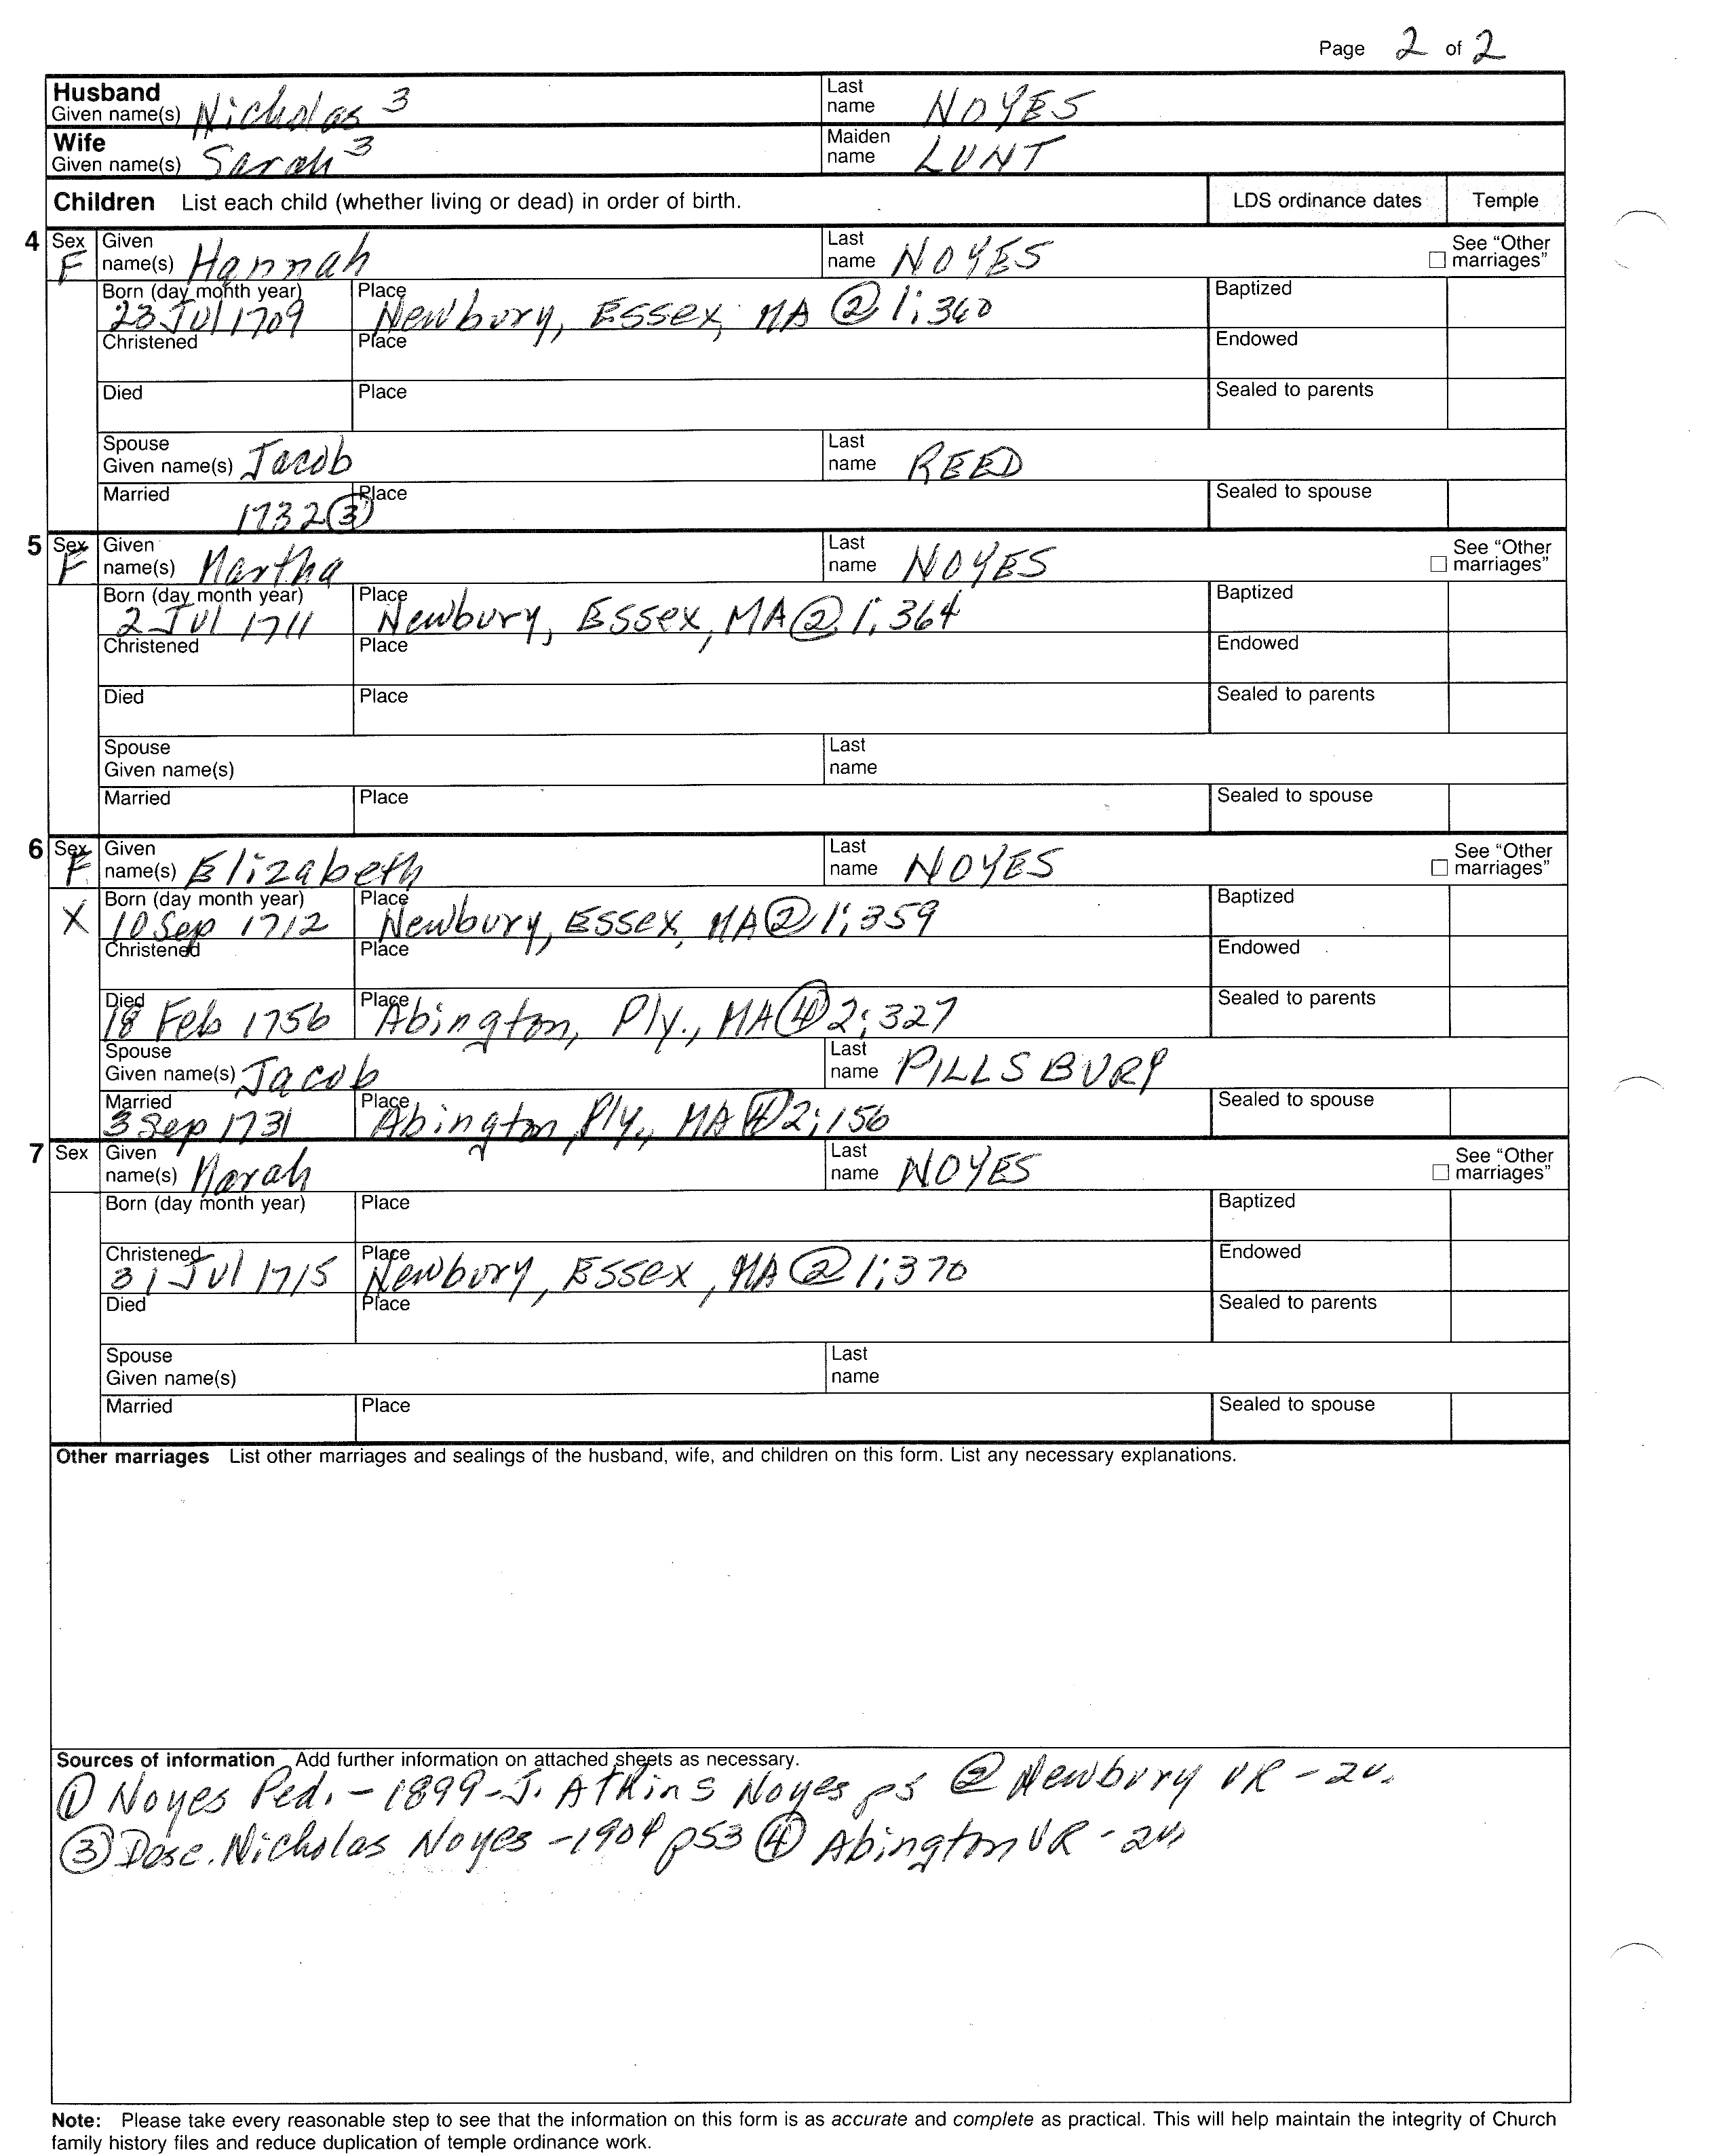 Page 2 of 2
Husband Given name(s) Nicholas 3 Last name NOYES
Wife Given name(s) Sarah 3 Maiden name LUNT
Children List each child (whether living or dead) in order of birth. LDS ordinance dates Temple
4 Sex F Given name(s) Hannah Last name NOYES See "Other marriages"
Born (day month year) 23 Jul 1709 Place Newbury, Essex, MA ② 1;360 Baptized
Christened Place Endowed
Died Place Sealed to parents
Spouse Given name(s) Jacob Last name REED
Married 1732 ③ Place Sealed to spouse
5 Sex F Given name(s) Martha Last name NOYES See "Other marriages"
Born (day month year) 2 Jul 1711 Place Newbury, Essex, MA ② 1;364 Baptized
Christened Place Endowed
Died Place Sealed to parents
Spouse Given name(s) Last name
Married Place Sealed to spouse
6 Sex F Given name(s) Elizabeth Last name NOYES See "Other marriages"
X Born (day month year) 10 Sep 1712 Place Newbury, Essex, MA ② 1;359 Baptized
Christened Place Endowed
Died 18 Feb 1756 Place Abington, Ply., MA ④ 2;327 Sealed to parents
Spouse Given name(s) Jacob Last name PILLSBURY
Married 3 Sep 1731 Place Abington, Ply., MA ④ 2;156 Sealed to spouse
7 Sex Given name(s) Marah Last name NOYES See "Other marriages"
Born (day month year) Place Baptized
Christened 31 Jul 1715 Place Newbury, Essex, MA ② 1;370 Endowed
Died Place Sealed to parents
Spouse Given name(s) Last name
Married Place Sealed to spouse
Other marriages List other marriages and sealings of the husband, wife, and children on this form. List any necessary explanations.
Sources of information Add further information on attached sheets as necessary.
① Noyes Ped. - 1899 - J. Atkins Noyes p5 ② Newbury VR - 2v.
③ Desc. Nicholas Noyes - 1904 p53 ④ Abington VR - 2v
Note: Please take every reasonable step to see that the information on this form is as accurate and complete as practical. This will help maintain the integrity of Church
family history files and reduce duplication of temple ordinance work.